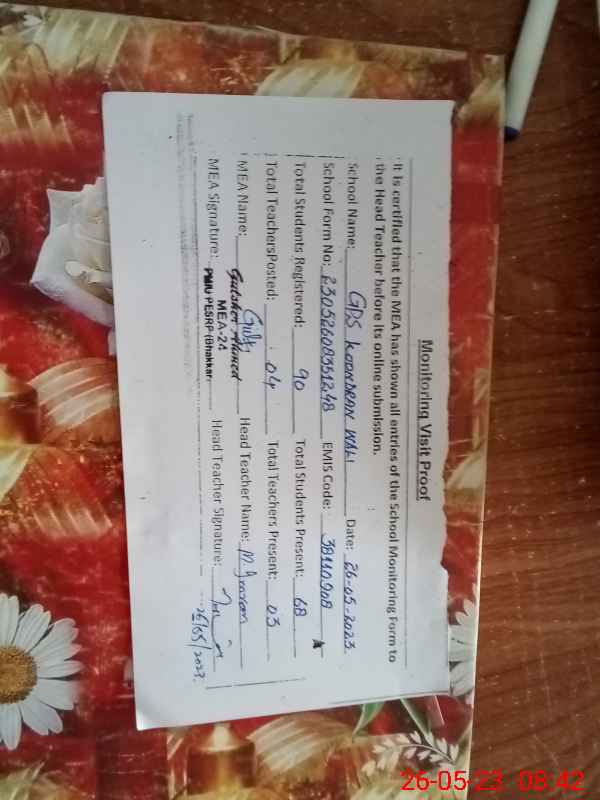 Monitoring Visit Proof
It is certified that the MEA has shown all entries of the School Monitoring Form to
the Head Teacher before its online submission.
School Name: GPS KOONDRAN WALI Date: 26-05-2023
School Form No: 23052608351248 EMIS Code: 38110908
Total Students Registered: 90 Total Students Present: 68
Total TeachersPosted: 04 Total Teachers Present: 03
MEA Name: Gulsher Ahmed Head Teacher Name: M. Imran
MEA-24
MEA Signature: PMIU-PESRP (Bhakkar) Head Teacher Signature:
26/05/2023
26-05-23 08:42